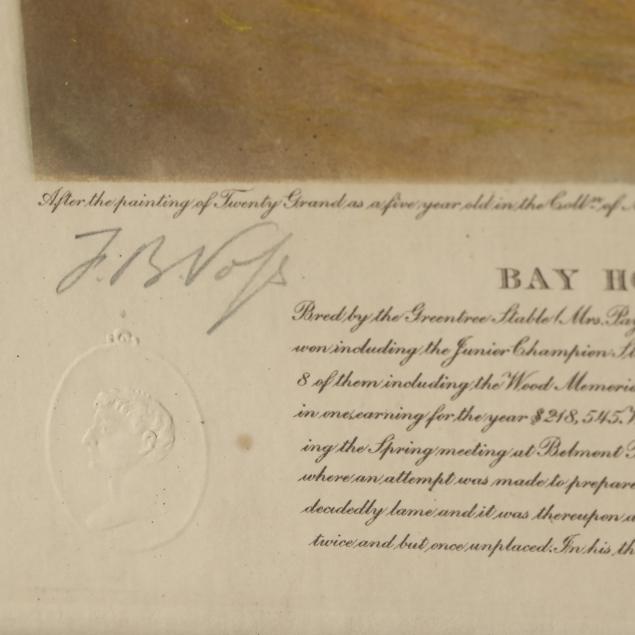 After the painting of Twenty Grand as a five year old in the Coll.ⁿ of
F. B. Voss
BAY
Bred by the Greentree Stable (Mrs.
won including the Junior Champion
8 of them including the Wood
in one, earning for the year $218,545.
ing the Spring meeting at Belmont
where an attempt was made to
decidedly lame and it was thereupon
twice and but once unplaced. In his